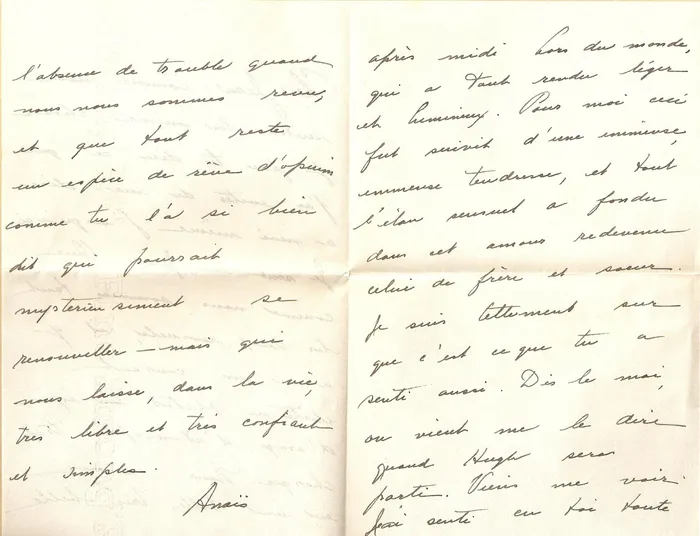 l'absence de trouble quand
nous nous sommes revus,
et que tout reste
un espèce de rêve d'opium
comme tu l'a si bien
dit qui pourrait
mysterieusement se
renouveller — mais qui
nous laisse, dans la vie,
très libre et très confiant
et simples.
Anaïs
après midi hors du monde,
qui a tout rendu léger
et lumineux. Pour moi ceci
fut suivit d'une immense,
immense tendresse, et tout
l'élan sensuel a fondu
dans cet amour redevenu
celui de frère et soeur.
Je suis tellement sur
que c'est ce que tu a
senti aussi. Dis le moi,
ou vient me le dire
quand Hugh sera
parti. Viens me voir.
J'ai senti en toi toute